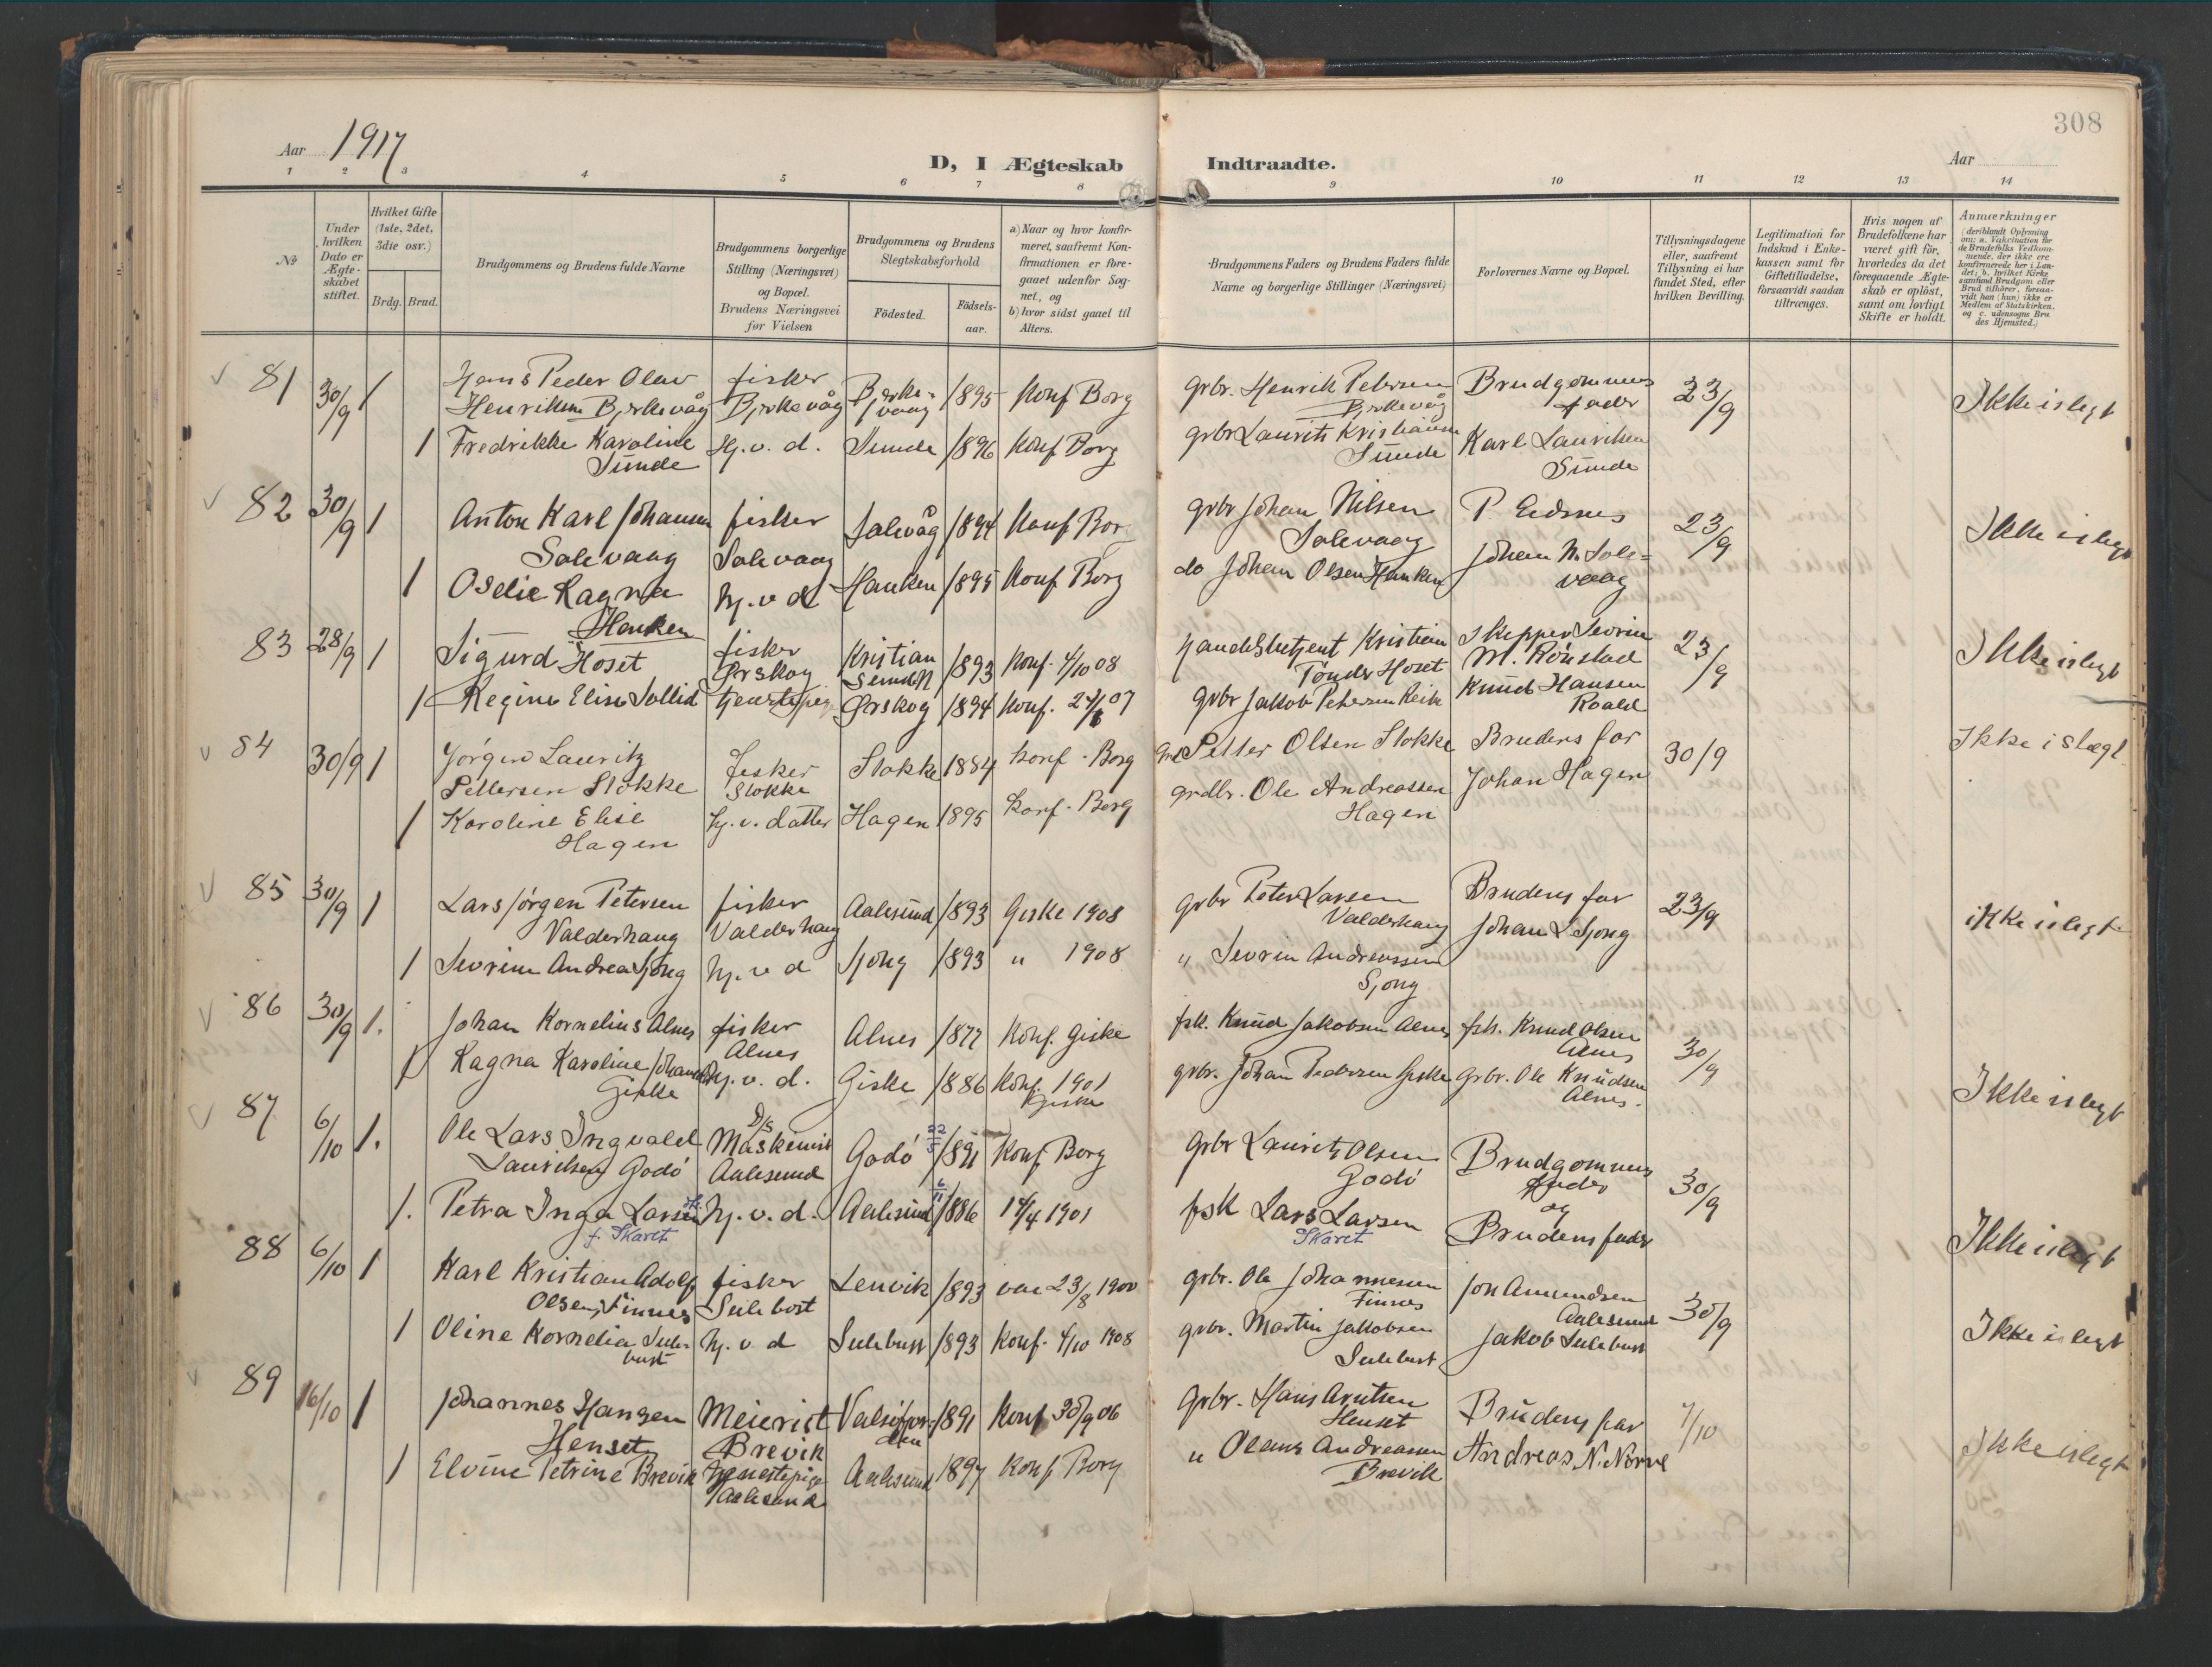 308
Aar 1917
D, I Ægteskab Indtraadte.
Aar
1 2 3 4 5 6 7 8 9 10 11 12 13 14
№
Under hvilken Dato er Ægteskabet stiftet.
Hvilket Gifte (1ste, 2det, 3die osv.)
Brdg. Brud.
Brudgommens og Brudens fulde Navne
Brudgommens borgerlige Stilling (Næringsvei) og Bopæl. Brudens Næringsvei før Vielsen
Brudgommens og Brudens Slegtskabsforhold
Födested.
Födsels-aar.
a) Naar og hvor konfirmeret, saafremt Konfirmationen er foregaaet udenfor Sognet, og
b) hvor sidst gaaet til Alters.
Brudgommens Faders og Brudens Faders fulde Navne og borgerlige Stillinger (Næringsvei)
Forlovernes Navne og Bopæl.
Tillysningsdagene eller, saafremt Tillysning ei har fundet Sted, efter hvilken Bevilling.
Legitimation for Indskud i Enkekassen samt for Giftetilladelse, forsaavidt saadan tiltrænges.
Hvis nogen af Brudefolkene har været gift för, hvorledes da det foregaaende Ægteskab er oplöst, samt om lovligt Skifte er holdt.
Anmærkninger
81 30/9 1 Hans Peder Olav fisker Bjerkevaag 1895 Konf Borg grbr. Henrik Petersen Brudgommens 23/9 Ikke i slegt
Henriksen Bjerkevåg Bjerkevåg Bjerkevåg fader
1 Fredrikke Karoline Hj.v.d. Sunde 1896 Konf Borg grbr Laurits Kristiansen Karl Lauritsen
Sunde Sunde Sunde
82 30/9 1 Anton Karl Johansen fisker Solevåg 1894 Konf Borg grbr Johan Nilsen P. Eidsnes 23/9 Ikke i slegt
Solevaag Solevaag Solevaag Johan N. Sole=
1 Oselie Ragna hj.v.d Hanken 1895 Konf Borg do Johan Olsen Hanken vaag
Hanken
83 28/9 1 Sigurd Hoset fisker Kristian 1893 Konf. 4/10 08 Handelsbetjent Kristian Skipper Sevrin 23/9 Ikke i slegt
Ørskog Sund N Tønder Hoset M. Rönstad
1 Regine Elise Sollid tjenestepige Ørskog 1894 Konf. 07 grbr Jakob Petersen Knud Hansen
Roald
84 30/9 1 Jörgen Lauritz fisker Stokke 1884 Konf. Borg Petter Olsen Stokke Brudens far 30/9 Ikke i slegt
Pettersen Stokke Stokke
1 Karoline Elise hj.v.datter Hagen 1895 Konf. Borg grdbr. Ole Andreassen Johan Hagen
Hagen Hagen
85 30/9 1 Lars Jørgen Petersen fisker Aalesund 1893 Giske 1908 grbr Peter Larsen Brudens far 23/9 ikke i slegt
Valderhaug Valderhaug Valderhaug Johan L. Sjong
1 Sevrine Andrea Sjong hj.v.d Sjong 1893 " 1908 " Sevrin Andreassen
Sjong
86 30/9 1. Johan Kornelius Alnes fisker Alnes 1877 Konf. Giske fsk. Knud Jakobsen Alnes fsk. Knud Olsen 30/9 Ikke i slegt
Alnes Alnes
1 Ragna Karoline Johansen Hj.v.d. Giske 1886 Konf. 1901 grbr. Johan Pedersen Giske Grbr. Ole Knudsen
Giske Giske Alnes.
87 6/10 1. Ole Lars Ingvald D/S Maskinist Godö 22/5 1891 Konf Borg grbr Laurits Olsen Brudgommens 30/9 Ikke i slegt
Lauritsen Godö Aalesund Godö fader
og
1. Petra Inga Larsen hj.v.d. Aalesund 6/11 1886 14/4 1901 fsk Lars Larsen Brudens fader
f. Skaret Skaret
88 6/10 1 Karl Kristian Adolf fisker Lenvik 1893 23/8 1900 grbr. Ole Johannesen Jon Amundsen 30/9 Ikke i slegt
Olsen, Finnes Sulebust Finnes Aalesund
1 Oline Kornelia Sule- hj.v.d Sulebust 1893 Konf. 4/10 1908 grbr. Martin Jakobsen Jakob Sulebust
bust Sulebust
89 16/10 1 Johannes Hansen Meierist Valsøfjor- 1891 Konf 30/9 06 Grbr. Hans Arntsen Brudens far 7/10 Ikke i slegt
Henset Brevik den Henset
1 Elvine Petrine Brevik tjenestepige Aalesund 1897 Konf Borg " Olaus Andreassen Andreas N. Nørve
Aalesund Brevik